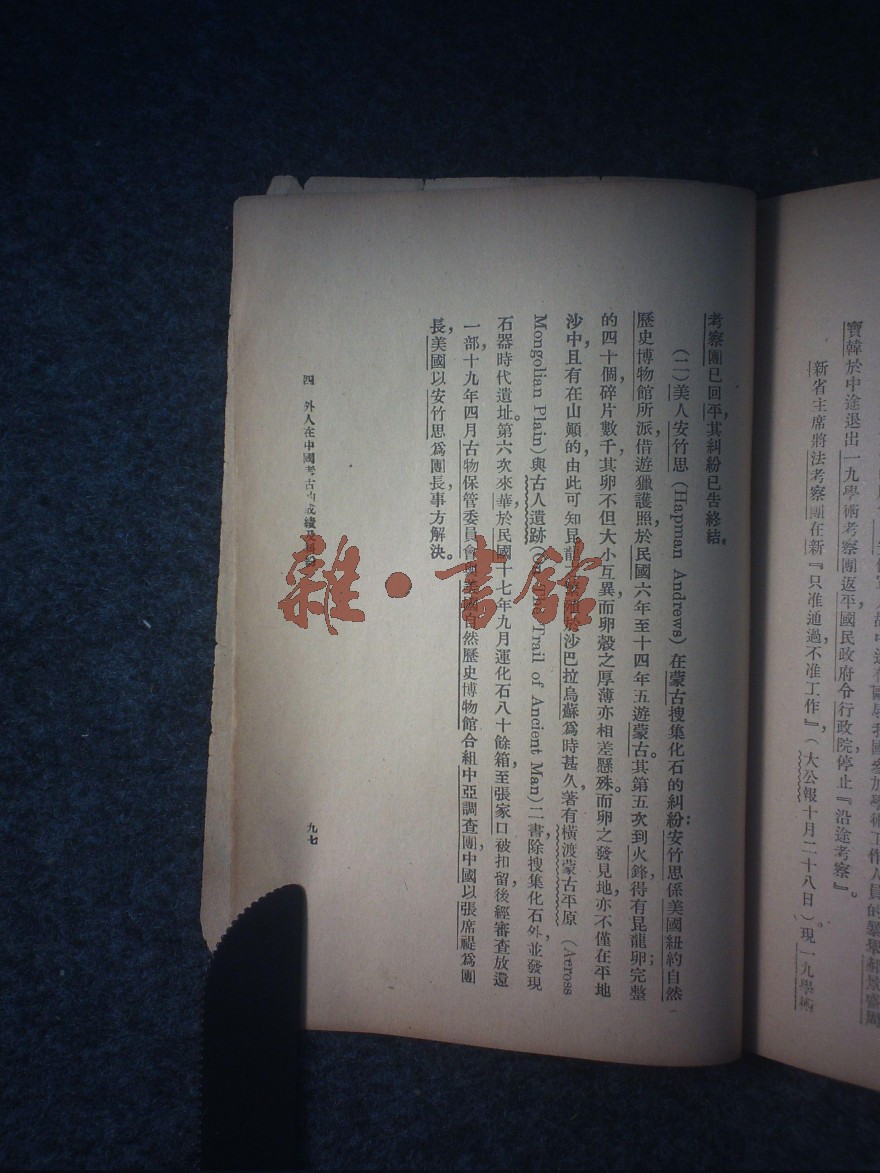 實韓於中途退出一九學術考察團返平國民政府令行政院停止『沿途考察』。
新省主席將法考察團在新『只准通過,不准工作』,(大公報十月二十八日)現一九學術
考察團已回平,其糾紛已告終結。
(二)美人安竹思(Hapman Andrews)在蒙古搜集化石的糾紛:安竹思係美國紐約自然
歷史博物館所派,借遊獵護照,於民國六年至十四年五遊蒙古。其第五次到火鋒,得有昆龍卵完整
的四十個,碎片數千,其卵不但大小互異,而卵殼之厚薄亦相差懸殊。而卵之發見地,亦不僅在平地
沙中,且有在山顚的,由此可知昆龍於沙巴拉烏蘇爲時甚久,著有橫渡蒙古平原(Across
Mongolian Plain)與古人遺跡(On the Trail of Ancient Man)二書,除搜集化石外,並發現
石器時代遺址。第六次來華,於民國十七年九月運化石八十餘箱,至張家口被扣留,後經審查放還
一部,十九年四月古物保管委員會與美國自然歷史博物館合組中亞調查團,中國以張席禔爲團
長,美國以安竹思爲團長,事方解決。
四 外人在中國考古的成績及糾紛
九七
雜·書館